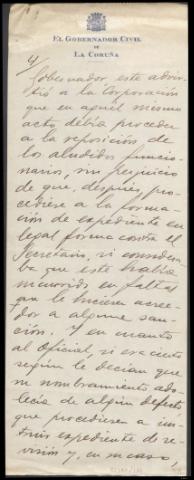 EL GOBERNADOR CIVIL
DE
LA CORUÑA
4/
Gobernador, este advir-
tió a la Corporación
que en aquel mismo
acto debía proceder
a la reposición de
los aludidos funcio-
narios, sin perjuicio
de que, después, pro-
cediese a la forma-
ción de expediente en
legal forma contra el
Secretario, si considera-
ba que este había
incurrido en faltas
que le hiciesen acree-
dor a alguna san-
ción. Y en cuanto
al Oficial, si era cierto
según le decían que
su nombramiento ado-
lecía de algún defecto,
que procediesen a ins-
truir expediente de re-
visión y, en su caso